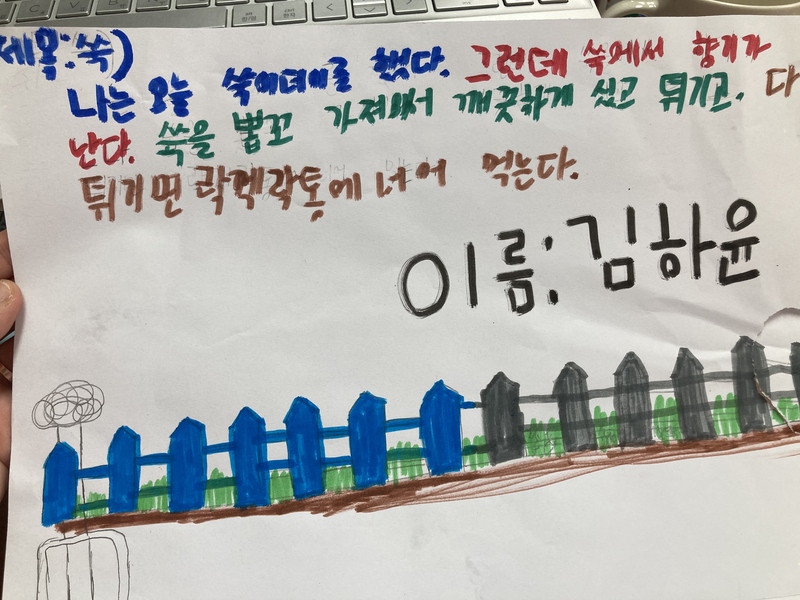 제목:쑥)
나는 오늘 쑥이데이를 했다. 그런데 쑥에서 향기가
난다. 쑥을 뽑꼬 가져와서 깨끗하게 씼고 튀기고. 다
튀기면 락켁락통에 너어 먹는다.
이름:김하윤